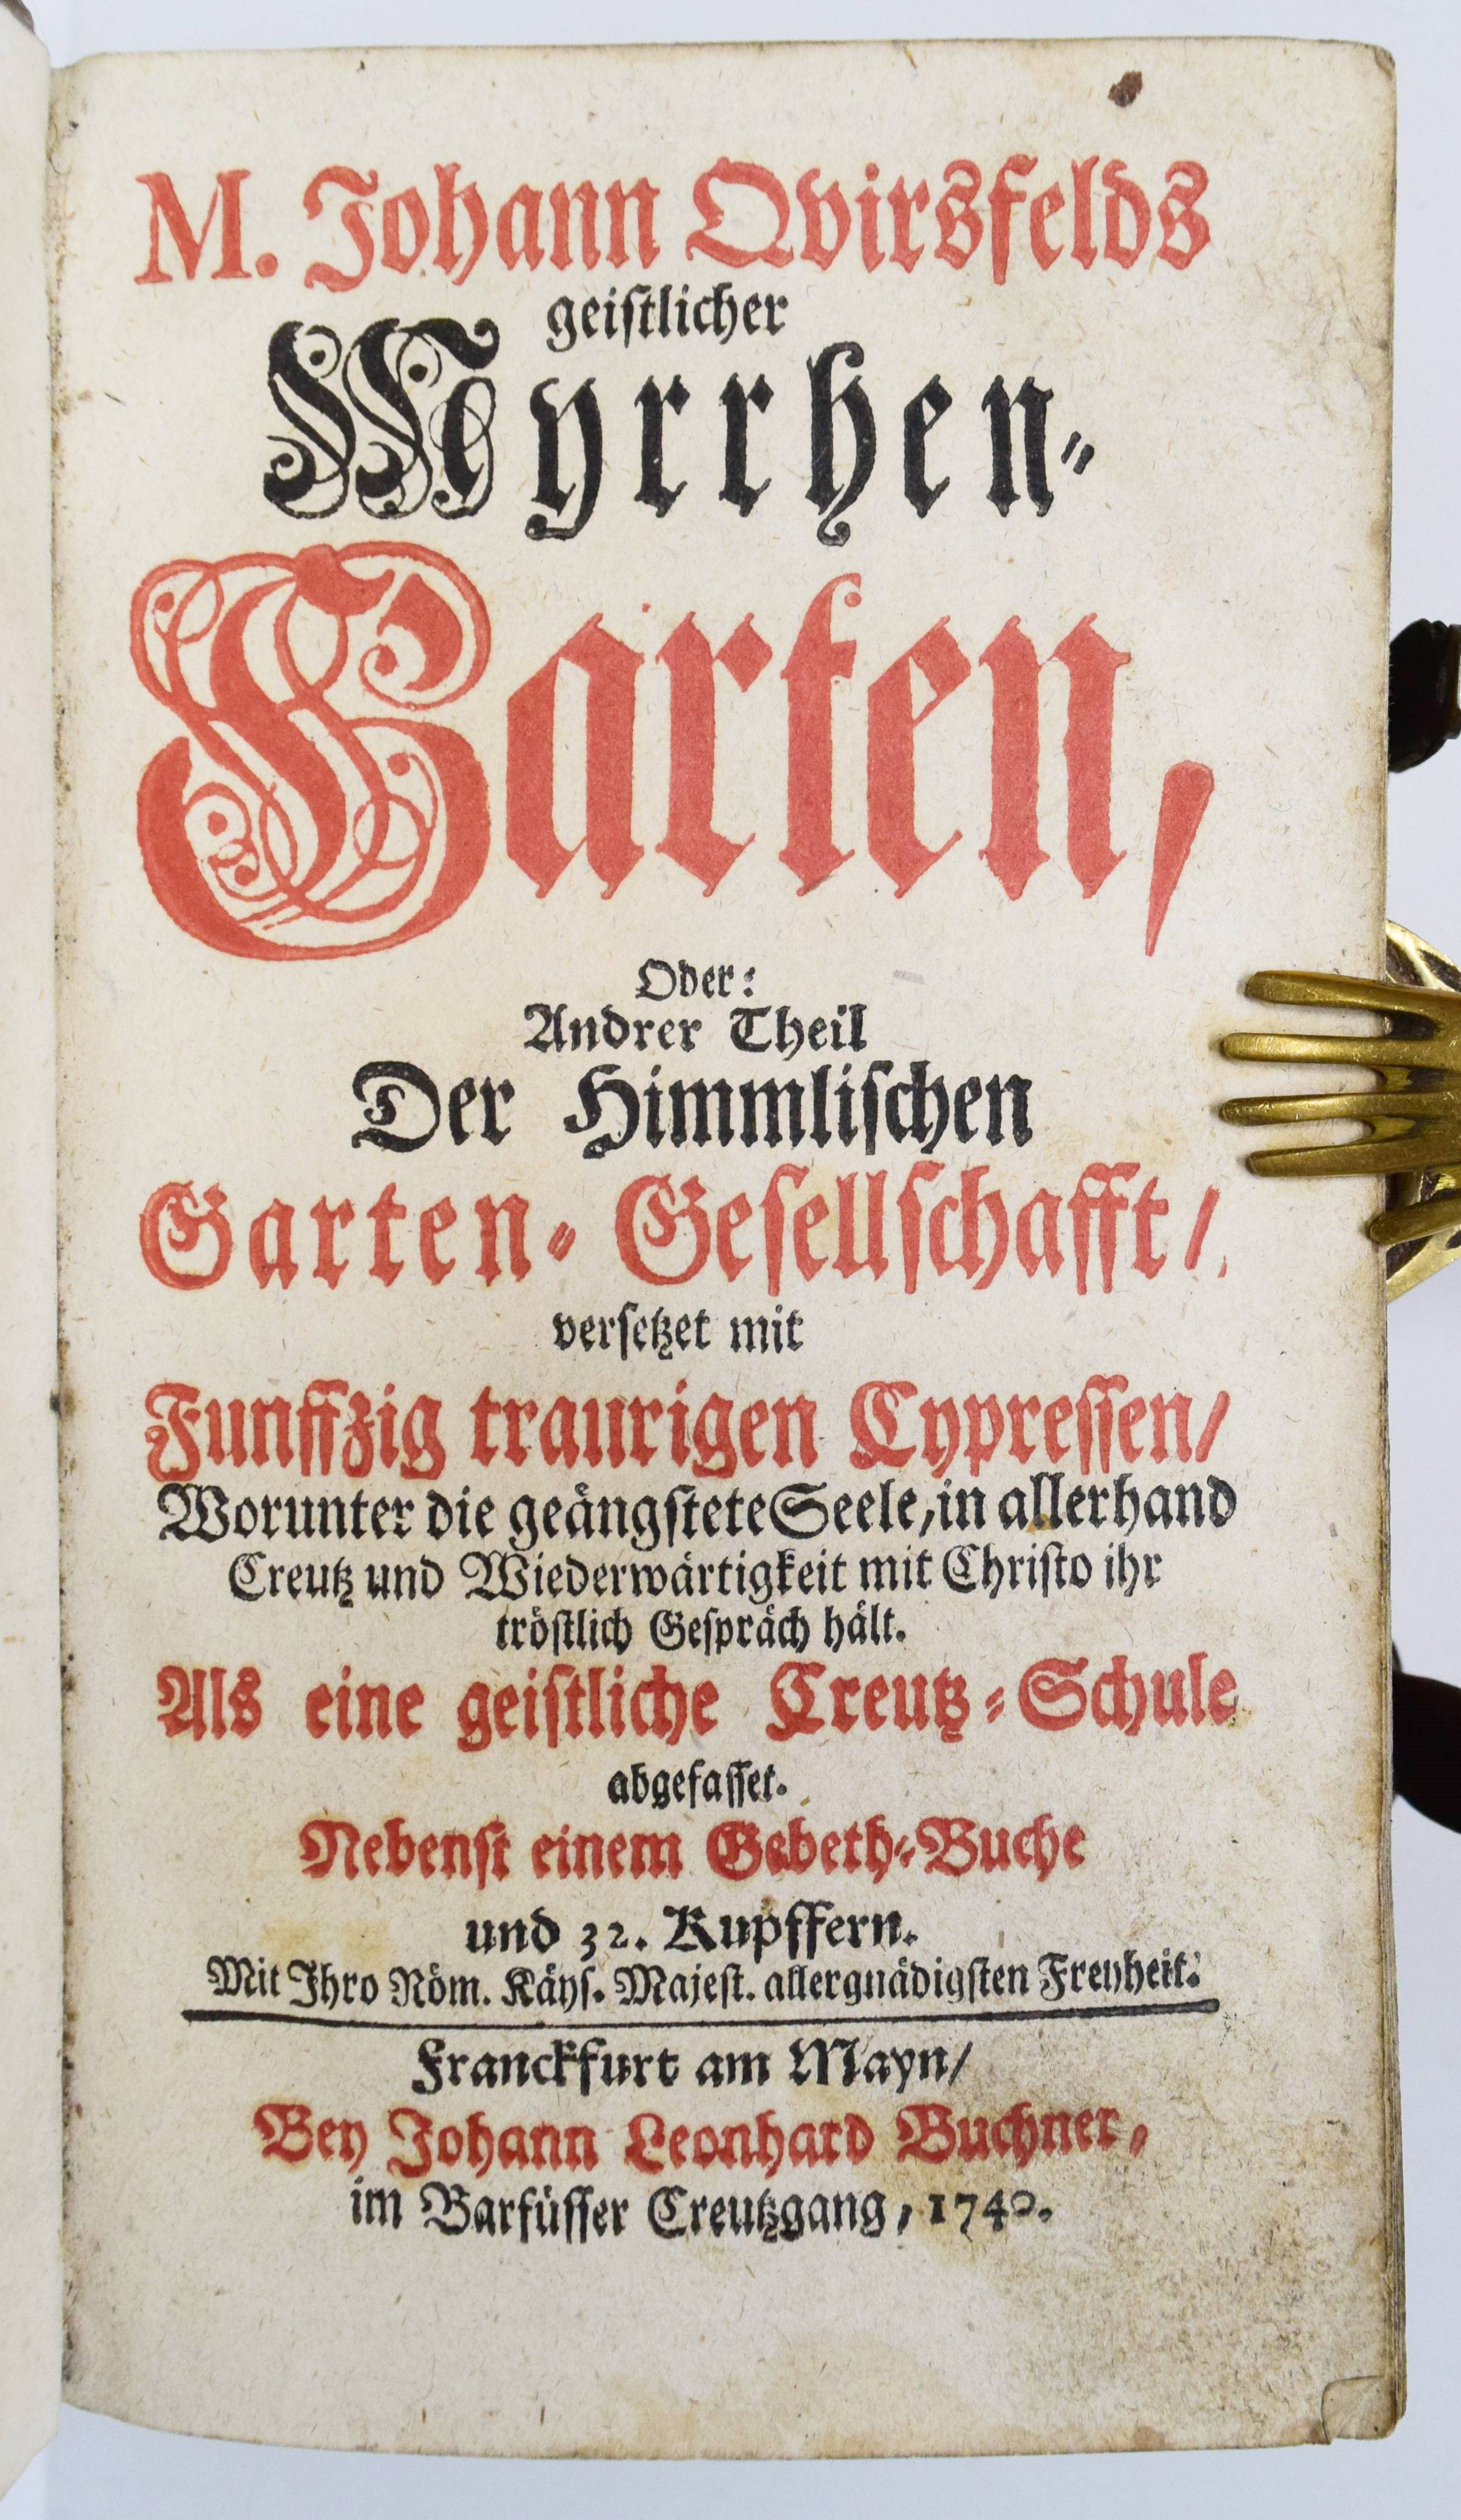 M. Johann Qvirsfelds
geistlicher
Myrrhen-
Garten,
Oder:
Andrer Theil
Der Himmlischen
Garten-Gesellschafft/
versetzet mit
Funffzig traurigen Cypressen/
Worunter die geängstete Seele, in allerhand
Creutz und Wiederwärtigkeit mit Christo ihr
tröstlich Gespräch hält.
Als eine geistliche Creutz-Schule
abgefasset.
Nebenst einem Gebeth-Buche
und 32. Kupffern.
Mit Ihro Röm. Käys. Majest. allergnädigsten Freyheit.
Franckfurt am Mayn/
Bey Johann Leonhard Buchner,
im Barfüsser Creutzgang, 1740.